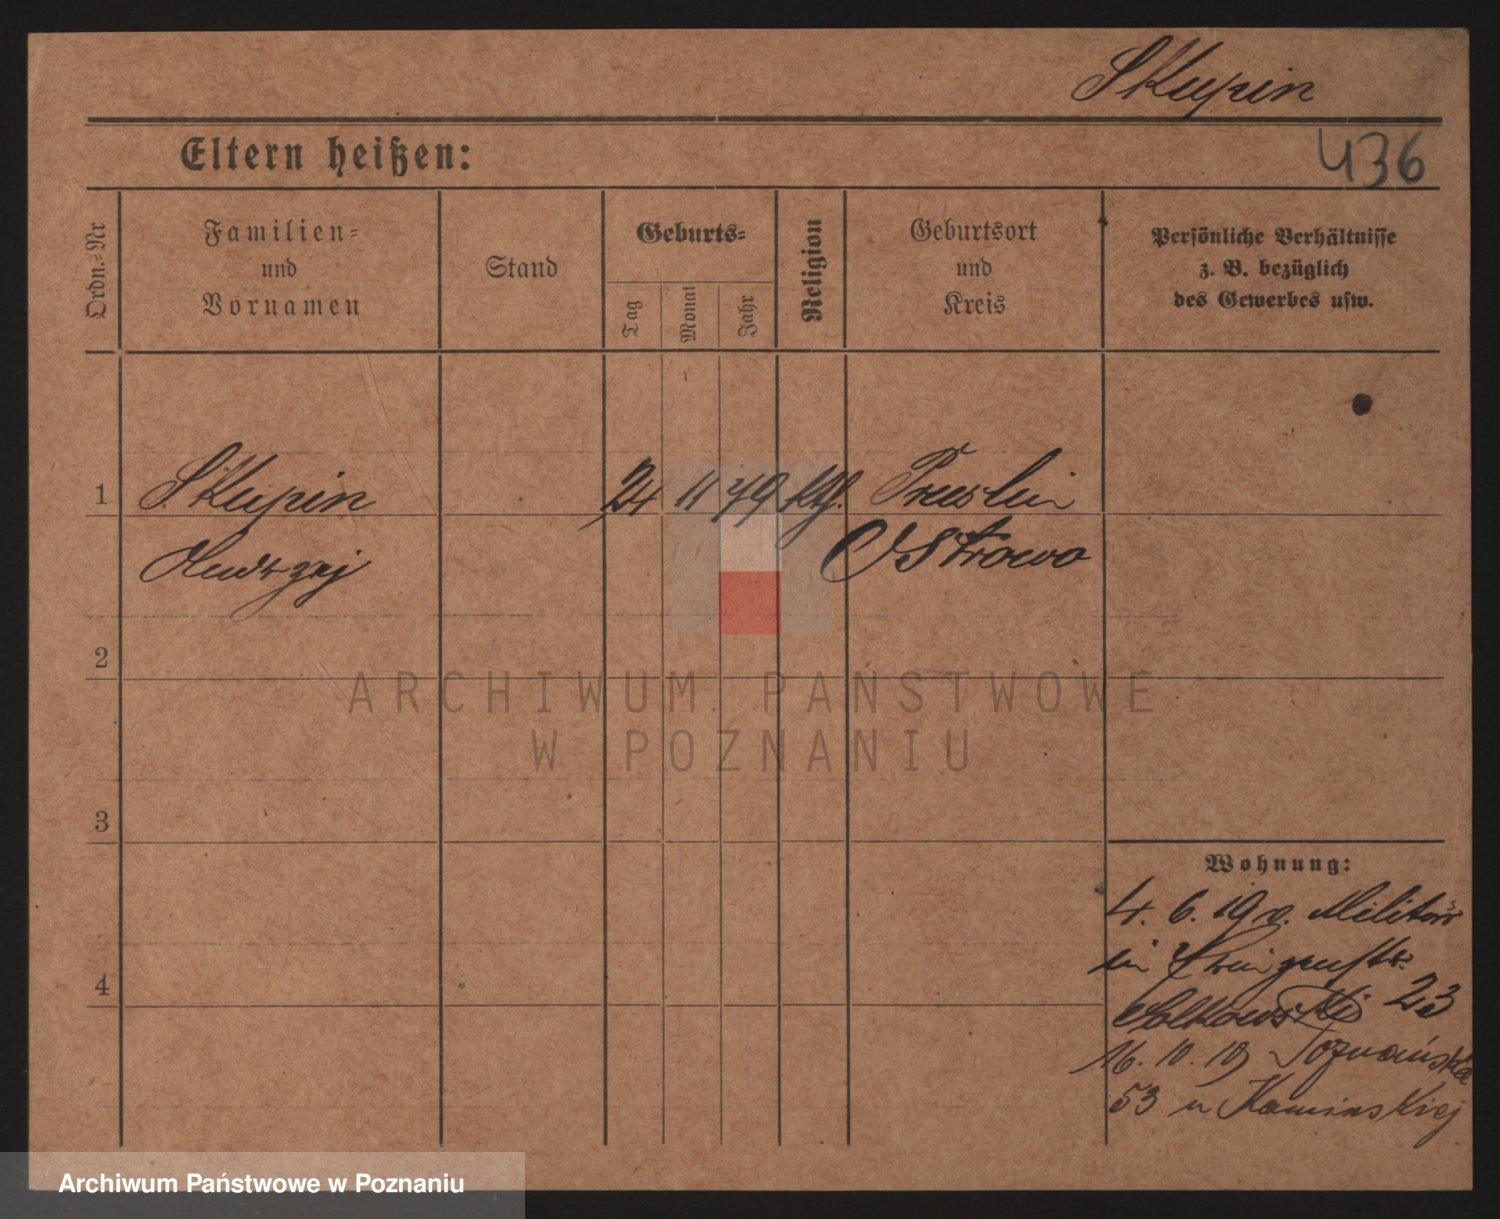 Skupin
436
Eltern heißen:
Ordn.-Nr
Familien-
und
Vornamen
Stand
Geburts-
Tag
Monat
Jahr
Religion
Geburtsort
und
Kreis
Persönliche Verhältnisse
z. B. bezüglich
des Gewerbes usw.
1
Skupin 24 11 79 ktf. Pruslin
Andrzej Ostrowo
2
ARCHIWUM PAŃSTWOWE
W POZNANIU
3
Wohnung:
4. 6. 19 v. Militär
in
4
23
16. 10. 19 Poznańska
53 u Kaminskiej
Archiwum Państwowe w Poznaniu